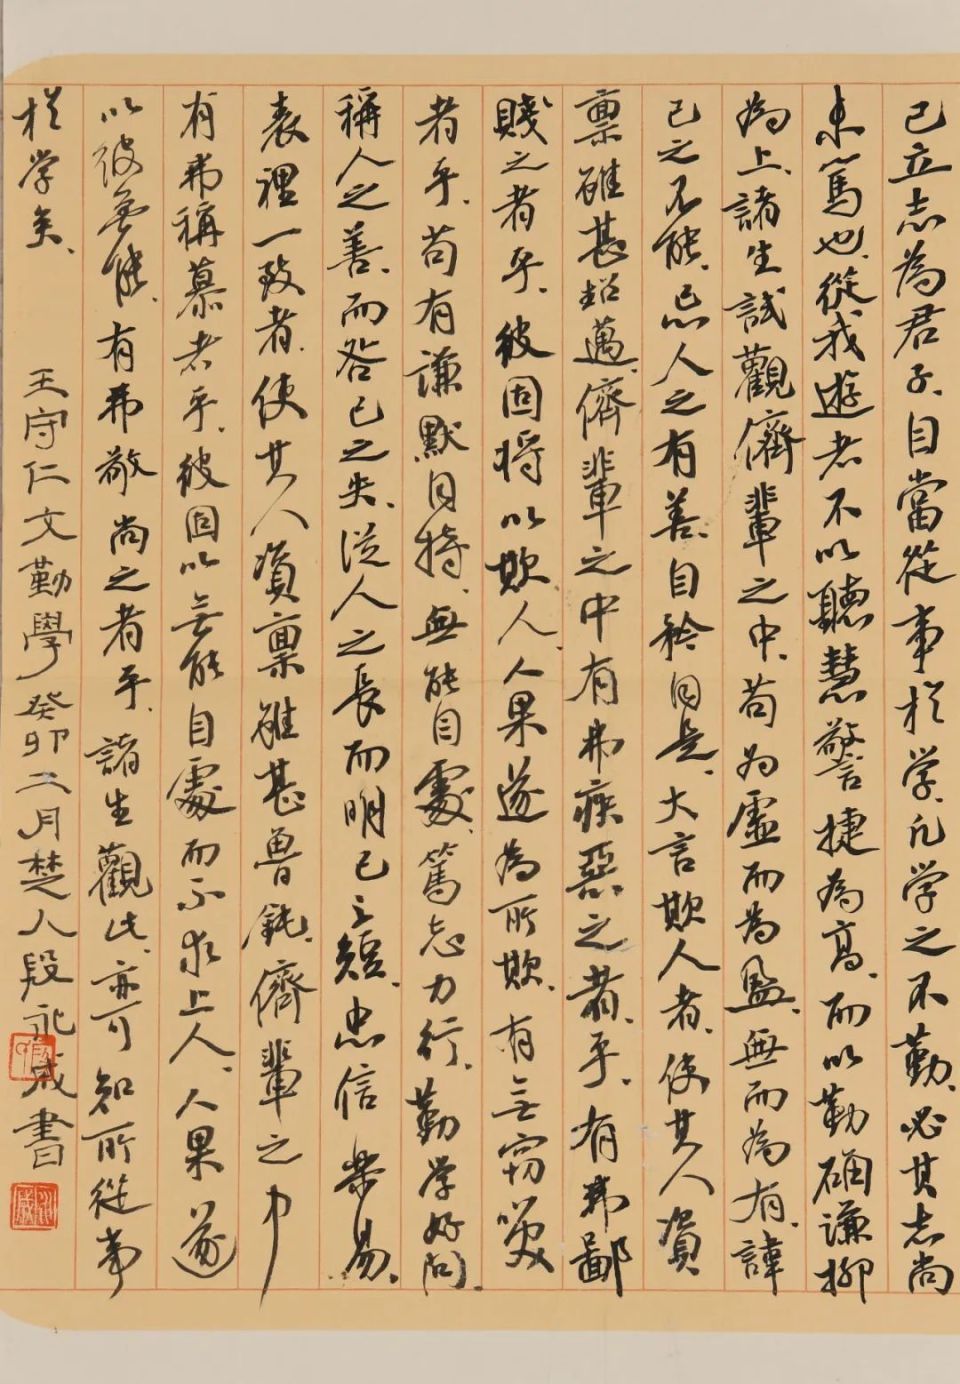 已立志為君子自當從事於学凡学之不勤必其志尚
未篤也從我遊者不以聰慧警捷為高而以勤确謙抑
為上諸生試觀儕輩之中苟为虛而為盈無而為有諱
己之不能忌人之有善自矜自是大言欺人者使其人資
禀雖甚超邁儕輩之中有弗疾惡之者乎有弗鄙
賤之者乎彼固將以欺人人果遂為所欺有无竊笑
者乎苟有謙默自持無能自處篤志力行勤学好问
稱人之善而咎己之失從人之長而明己之短忠信樂易
表裡一致者使其人資禀雖甚魯鈍儕輩之中
有弗稱慕者乎彼固以无能自處而不求上人人果遂
以彼無能有弗敬尚之者乎諸生觀此亦可知所從事
於学矣
王守仁文勤學癸卯二月楚人段永成書